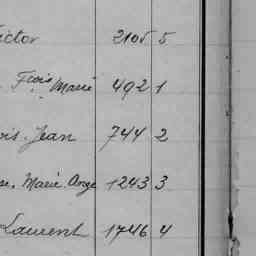 ictor 2105 5
Fçois Marie 492 1
ois Jean 744 2
se, Marie Ange 1243 3
Laurent 1746 4